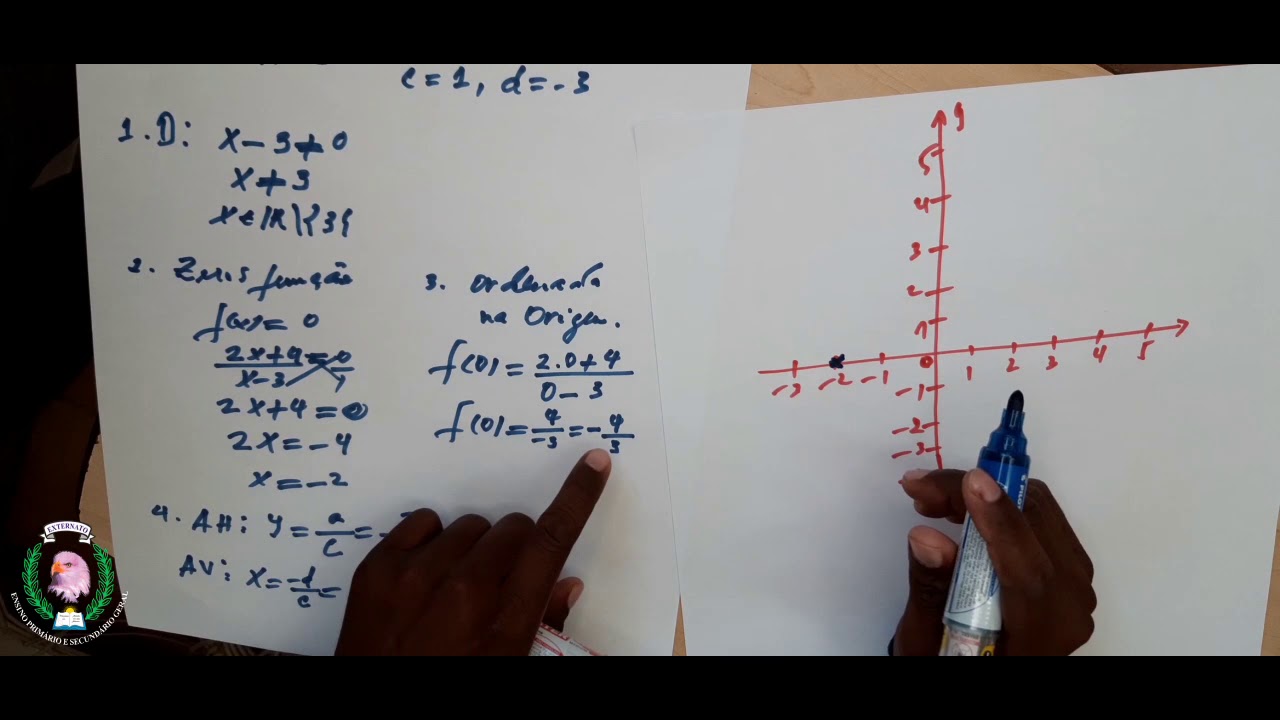 c = 1, d = -3
1. D: x - 3 ≠ 0
x ≠ 3
x ∈ IR \ {3}
2. Zeros função
f(x) = 0
2x+4 = 0
x-3 1
2x+4 = 0
2x = -4
x = -2
3. Ordenada
na Origem.
f(0) = 2.0+4
0-3
f(0) = 4/-3 = -4/3
4. AH: y = a/c =
AV: x = -d/c =
y
5
4
3
2
1
0
-3 -2 -1 1 2 3 4 5
-1
-2
-3
EXTERNATO
ENSINO PRIMÁRIO E SECUNDÁRIO GERAL